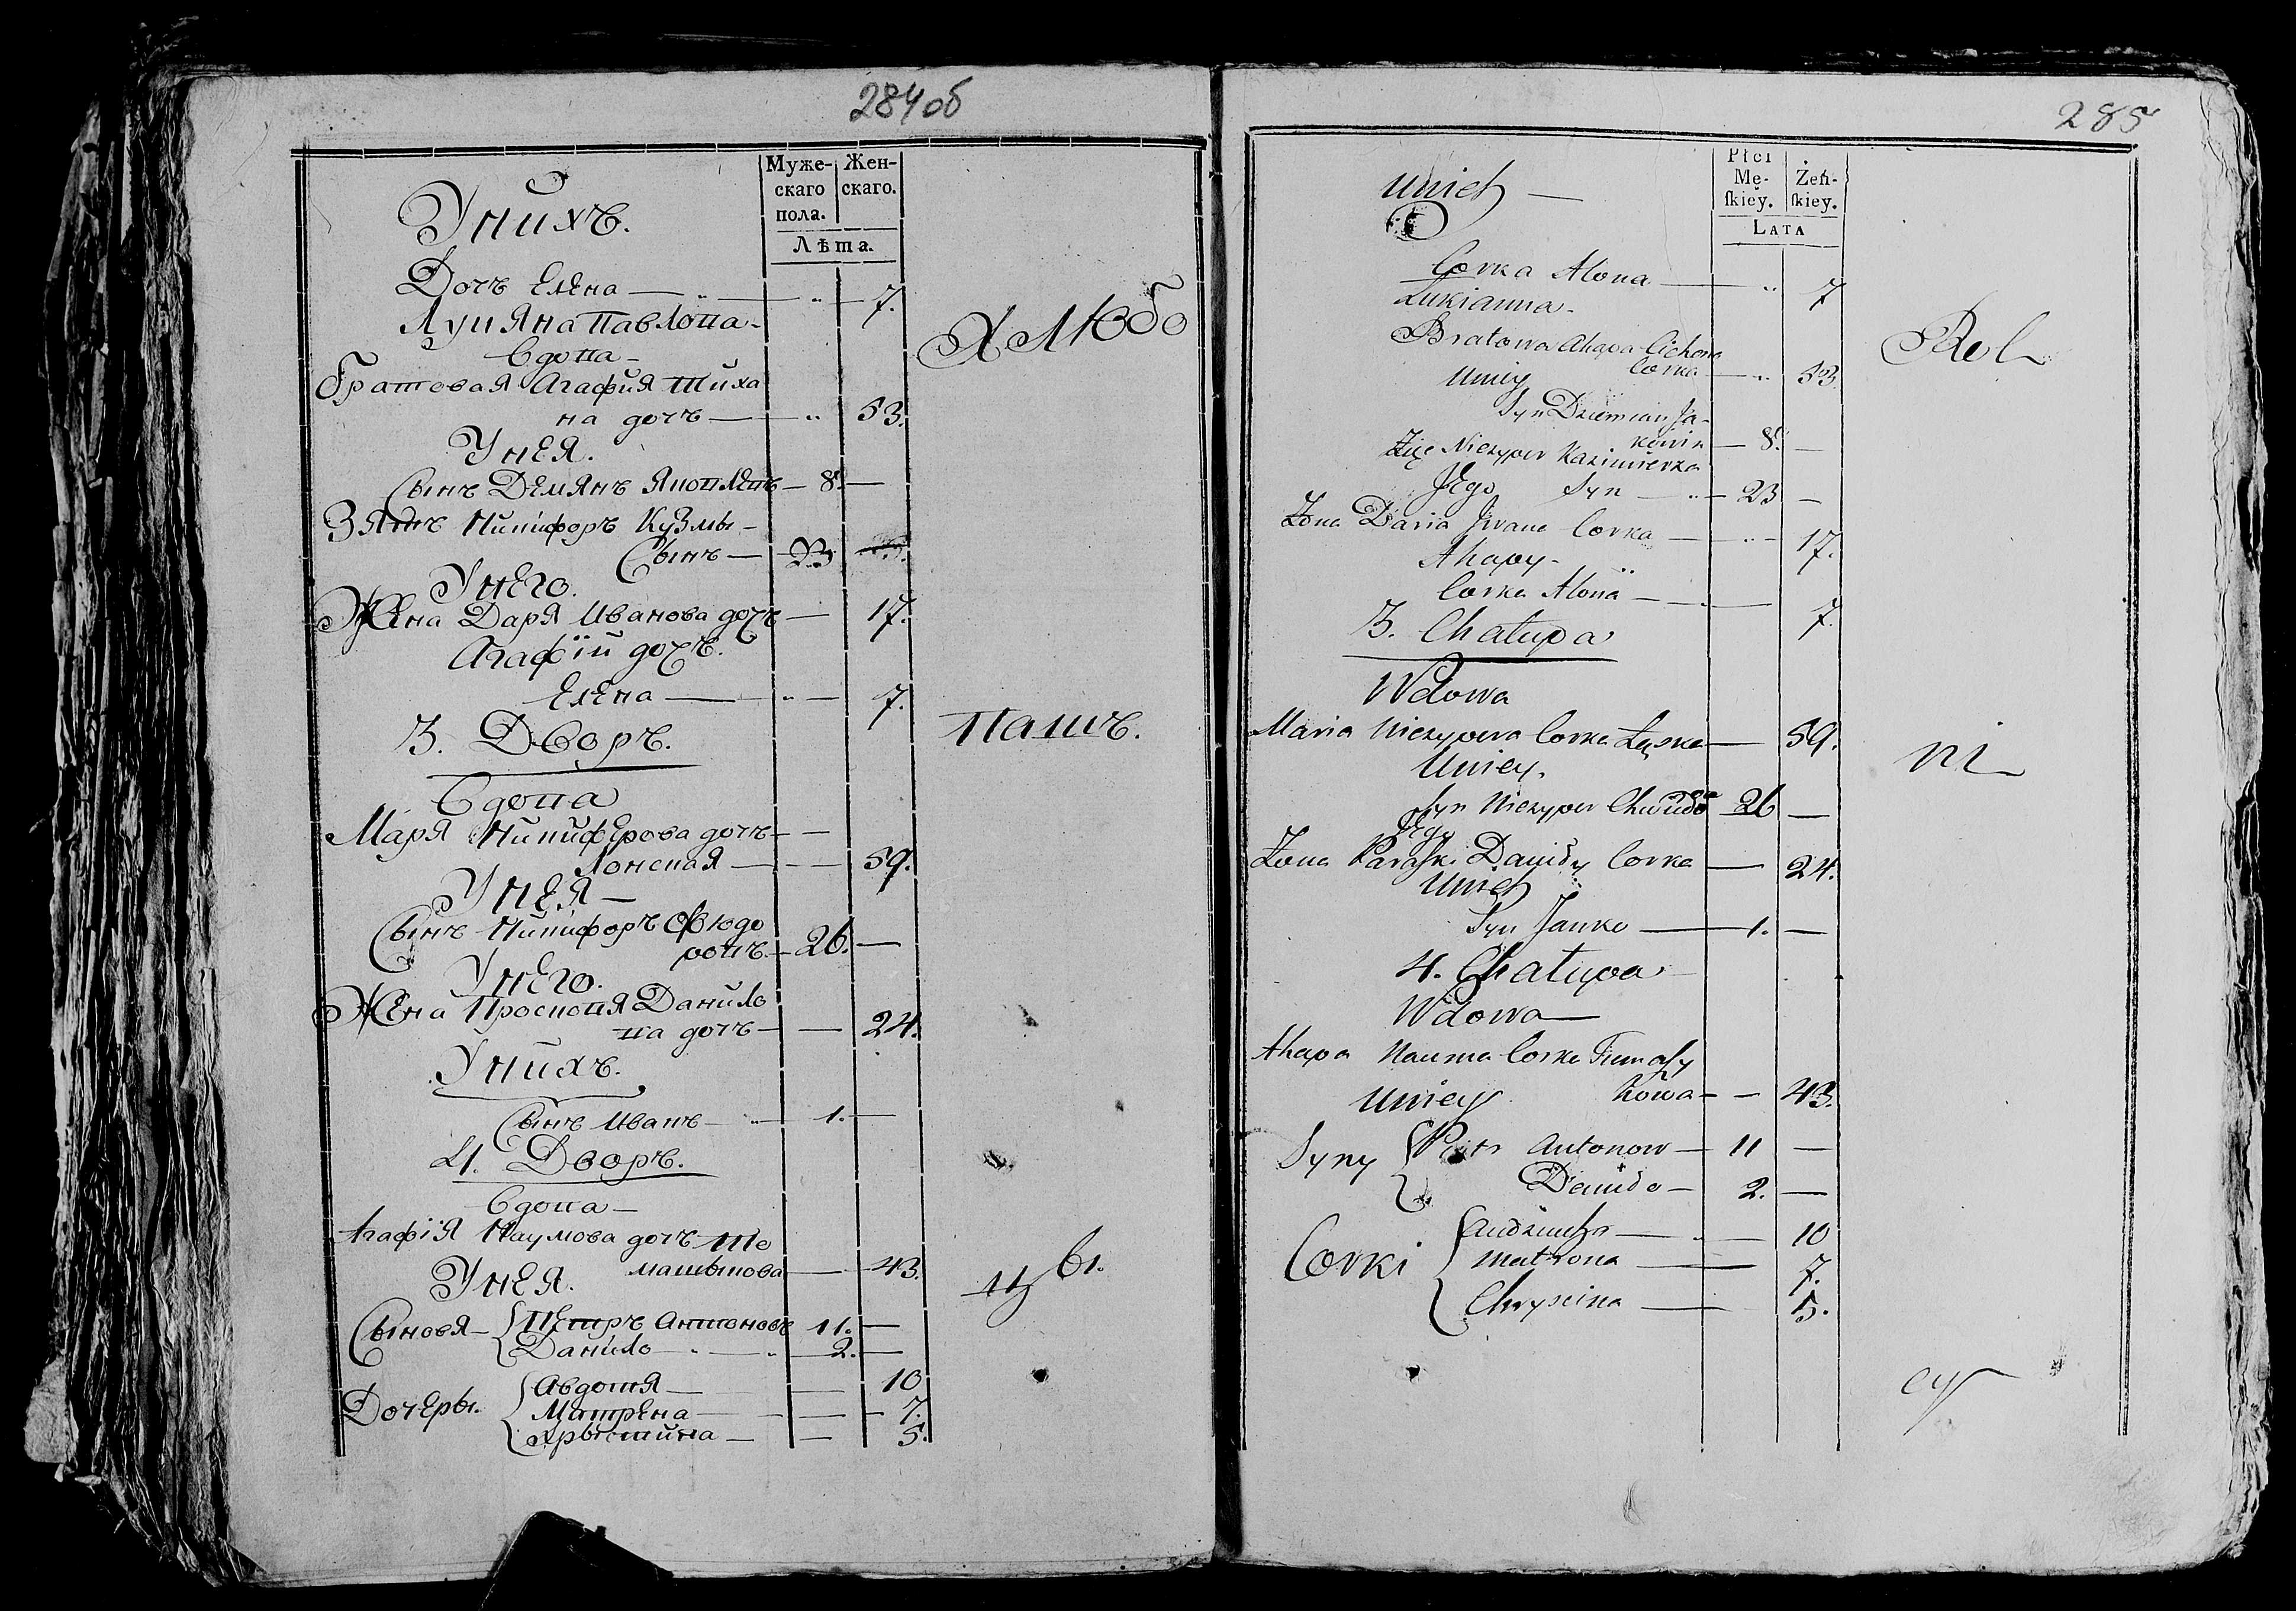 284 об
Муже- Жен-
скаго скаго.
пола.
Лѣта.
Унихъ.
Дочь Елена — 7.
Луцяна Павлова
Вдова
Братовая Агафия Тиха
на дочъ — 53.
Унея.
Сынъ Демянъ — 8 —
Зять Никифоръ Кузмы
Сынъ — 23
Унего.
Жена Даря Иванова дочъ — 17.
Агафiи дочъ.
Елена — 7.
3. Дворъ.
Вдова
Маря Никиферова дочъ
Лонская — 59.
Унея —
Сынъ Никифоръ Фюдо
ровъ — 26. —
Унего.
Жена Просковя Данило
ва дочъ — 24.
Унихъ.
Сынъ Иванъ — 1. —
4. Дворъ.
Вдова —
Агафiя Наумова дочъ То
машкова — 43.
Унея.
Сыновя — Петръ Антоновъ 11. —
Данило — 2. —
Дочеры. Авдотя — 10
Матрена — 7.
Хрыстина — 5.
Хлюбо
пашъ.
цы.
285
Płci
Mę- Żeń-
ſkiey. ſkiey.
LATA
Unich —
Corka Alona — 7
Łukianna
Bratowa Ahapa Cichona
Corka — 53.
Uniey
Syn Dziemian Ja-
kowin — 8. —
Zięc Niczypor Kazimierza
Syn — 23 —
Jego
Zona Daria Jwana Corka — 17.
Ahapy
Corka Alona — 7.
3. Chałupa
Wdowa
Maria Niczypora Corka Łąska — 59.
Uniey.
Syn Niczypor Chwiedo — 26 —
Jego
Zona Paraſki Daniły Corka — 24.
Unich
Syn Janko — 1. —
4. Chałupa
Wdowa —
Ahapa Nauma Corka Tumaſzy
kowa — 43.
Uniey
Syny Piotr Antonow — 11 —
Daniło — 2. —
Corki — 10
Matrona — 7.
Chryscina — 5.
Rol
ni
cy